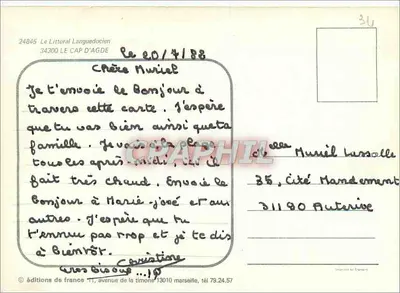 34846 Le Littoral Languedocien
34300 LE CAP D'AGDE
34
le 20/7/88
Chère Muriel
Je t'envoie le bonjour à
travers cette carte. J'espère
que tu vas bien ainsi que ta
famille. Je vais à la plage
tous les après-midi, ici il
fait très chaud. Envoie le
bonjour à Marie-José et aux
autres. J'espère que tu
t'ennui pas trop et je te dis
à bientôt.
Christine
Gros Bisous
elle Muriel Lassalle
35, Cité Mandement
31190 Auterive
© éditions de france 11, avenue de la timone 13010 marseille tél 79.24.57